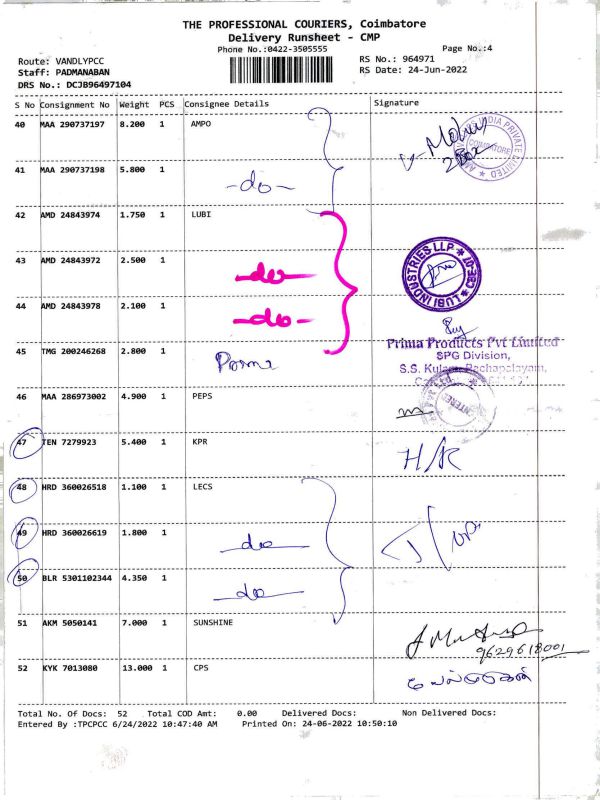 THE PROFESSIONAL COURIERS, Coimbatore
Delivery Runsheet - CMP
Phone No.:0422-3505555
Page No.:4
Route: VANDLYPCC
RS No.: 964971
Staff: PADMANABAN
RS Date: 24-Jun-2022
DRS No.: DCJB96497104
S No Consignment No Weight PCS Consignee Details Signature
40 MAA 290737197 8.200 1 AMPO
INDIA PRIVATE LIMITED
COIMBATORE
41 MAA 290737198 5.800 1
-do-
42 AMD 24843974 1.750 1 LUBI
43 AMD 24843972 2.500 1
-do-
LUBI INDUSTRIES LLP
CBE-07
44 AMD 24843978 2.100 1
-do-
45 TMG 200246268 2.800 1 Prima
Prima Products Pvt Limited
SPG Division,
S.S. Kulam, Pachapalayam,
46 MAA 286973002 4.900 1 PEPS
47 TEN 7279923 5.400 1 KPR
48 HRD 360026518 1.100 1 LECS
49 HRD 360026619 1.800 1
-do-
50 BLR 5301102344 4.350 1
-do-
51 AKM 5050141 7.000 1 SUNSHINE
9629618001
52 KYK 7013080 13.000 1 CPS
Total No. Of Docs: 52 Total COD Amt: 0.00 Delivered Docs: Non Delivered Docs:
Entered By :TPCPCC 6/24/2022 10:47:40 AM Printed On: 24-06-2022 10:50:10